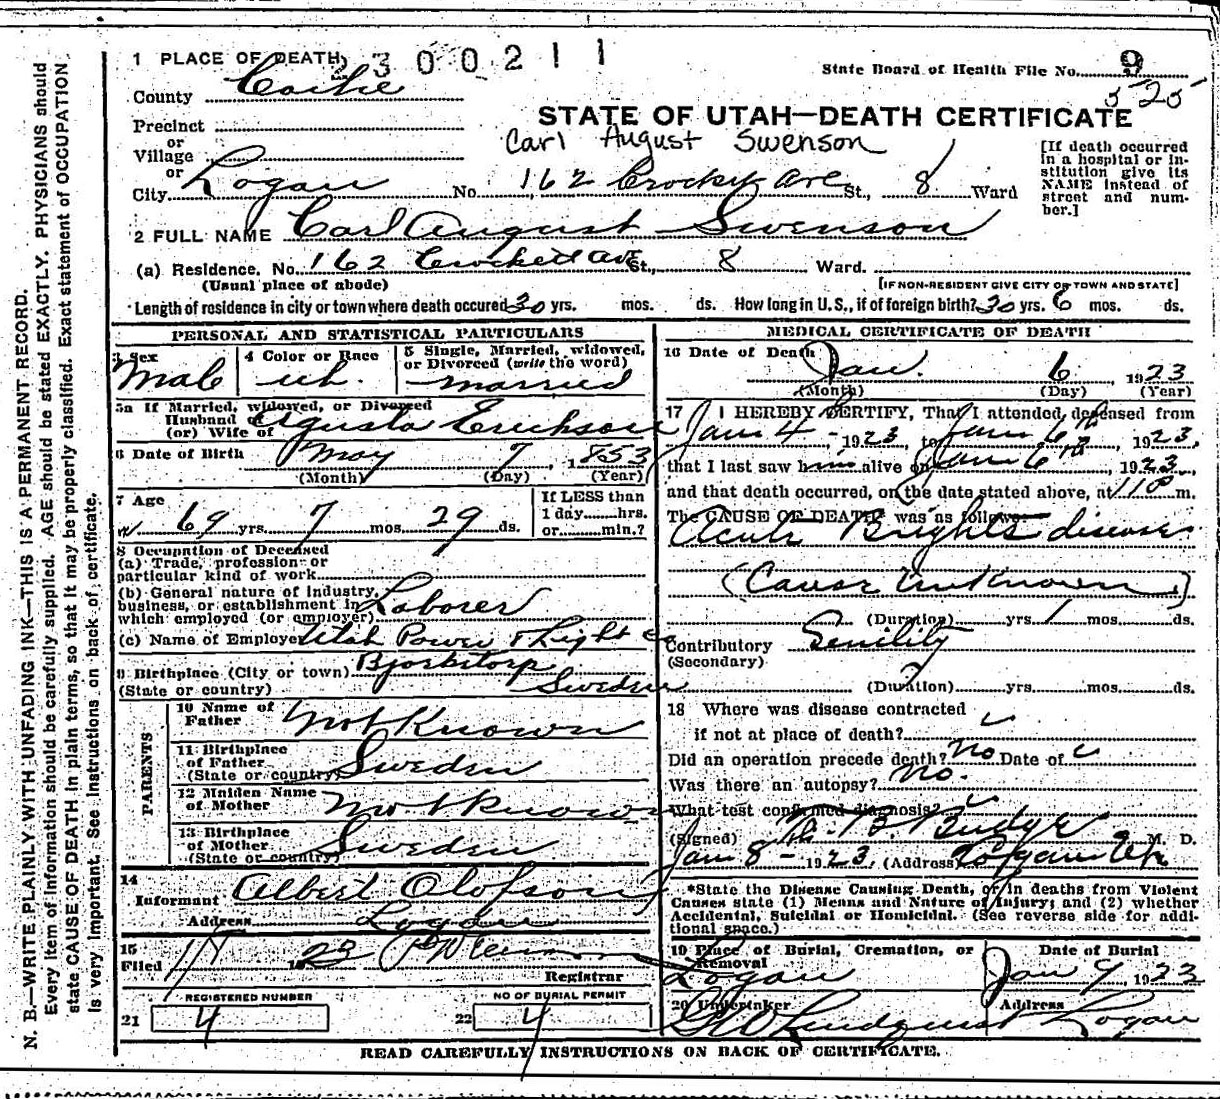 1 PLACE OF DEATH 2300211
State Board of Health File No. 9
525
County Cache
STATE OF UTAH—DEATH CERTIFICATE
Precinct
or
Village
or
Carl August Swenson
[If death occurred in a hospital or institution give its NAME instead of street and number.]
City Logan No. 162 Crockett Ave St., 8 Ward
2 FULL NAME Carl August Swenson
(a) Residence. No. 162 Crockett Ave St., 8 Ward.
(Usual place of abode) [IF NON-RESIDENT GIVE CITY OR TOWN AND STATE]
Length of residence in city or town where death occured 30 yrs. mos. ds. How long in U.S., if of foreign birth? 30 yrs. 6 mos. ds.
PERSONAL AND STATISTICAL PARTICULARS
3 Sex Male
4 Color or Race wh.
5 Single, Married, widowed, or Divorced (write the word) married
5a If Married, widowed, or Divorced
Husband of
(or) Wife of Agusta Erickson
6 Date of Birth May 7, 1853
(Month) (Day) (Year)
7 Age 69 yrs. 7 mos. 29 ds.
If LESS than
1 day hrs.
or min.?
8 Occupation of Deceased
(a) Trade, profession or
particular kind of work
(b) General nature of industry,
business, or establishment in
which employed (or employer) Laborer
(c) Name of Employer Utah Power & Light Co
9 Birthplace (City or town) Bjorkstorp
(State or country) Sweden
PARENTS
10 Name of
Father Not Known
11 Birthplace
of Father
(State or country) Sweden
12 Maiden Name
of Mother Not Known
13 Birthplace
of Mother
(State or country) Sweden
14
Informant Albert Olofson
Address Logan
15
Filed 1/9 1923
Registrar
REGISTERED NUMBER
21 4
NO OF BURIAL PERMIT
22 4
MEDICAL CERTIFICATE OF DEATH
16 Date of Death Jan. 6, 1923
(Month) (Day) (Year)
17 I HEREBY CERTIFY, That I attended deceased from
Jan 4 - 1923, to Jan 6th, 1923,
that I last saw him alive on Jan 6th, 1923,
and that death occurred, on the date stated above, at 110 m.
The CAUSE OF DEATH* was as follows:
Acute Brights disease
(Cause unknown)
(Duration) yrs. 1 mos. ds.
Contributory Senility
(Secondary)
(Duration) yrs. mos. ds.
18 Where was disease contracted
if not at place of death?
Did an operation precede death? No Date of
Was there an autopsy? No.
What test confirmed diagnosis?
(Signed) Budge M. D.
Jan 8 - 1923, (Address) Logan Ut
*State the Disease Causing Death, or in deaths from Violent
Causes state (1) Means and Nature of Injury; and (2) whether
Accidental, Suicidal or Homicidal. (See reverse side for addi-
tional space.)
19 Place of Burial, Cremation, or
Removal Logan
Date of Burial
Jan 9, 1923
20 Undertaker Lindquist
Address Logan
READ CAREFULLY INSTRUCTIONS ON BACK OF CERTIFICATE.
N. B.—WRITE PLAINLY WITH UNFADING INK—THIS IS A PERMANENT RECORD.
Every item of information should be carefully supplied. AGE should be stated EXACTLY. PHYSICIANS should
state CAUSE OF DEATH in plain terms, so that it may be properly classified. Exact statement of OCCUPATION
is very important. See instructions on back of certificate.